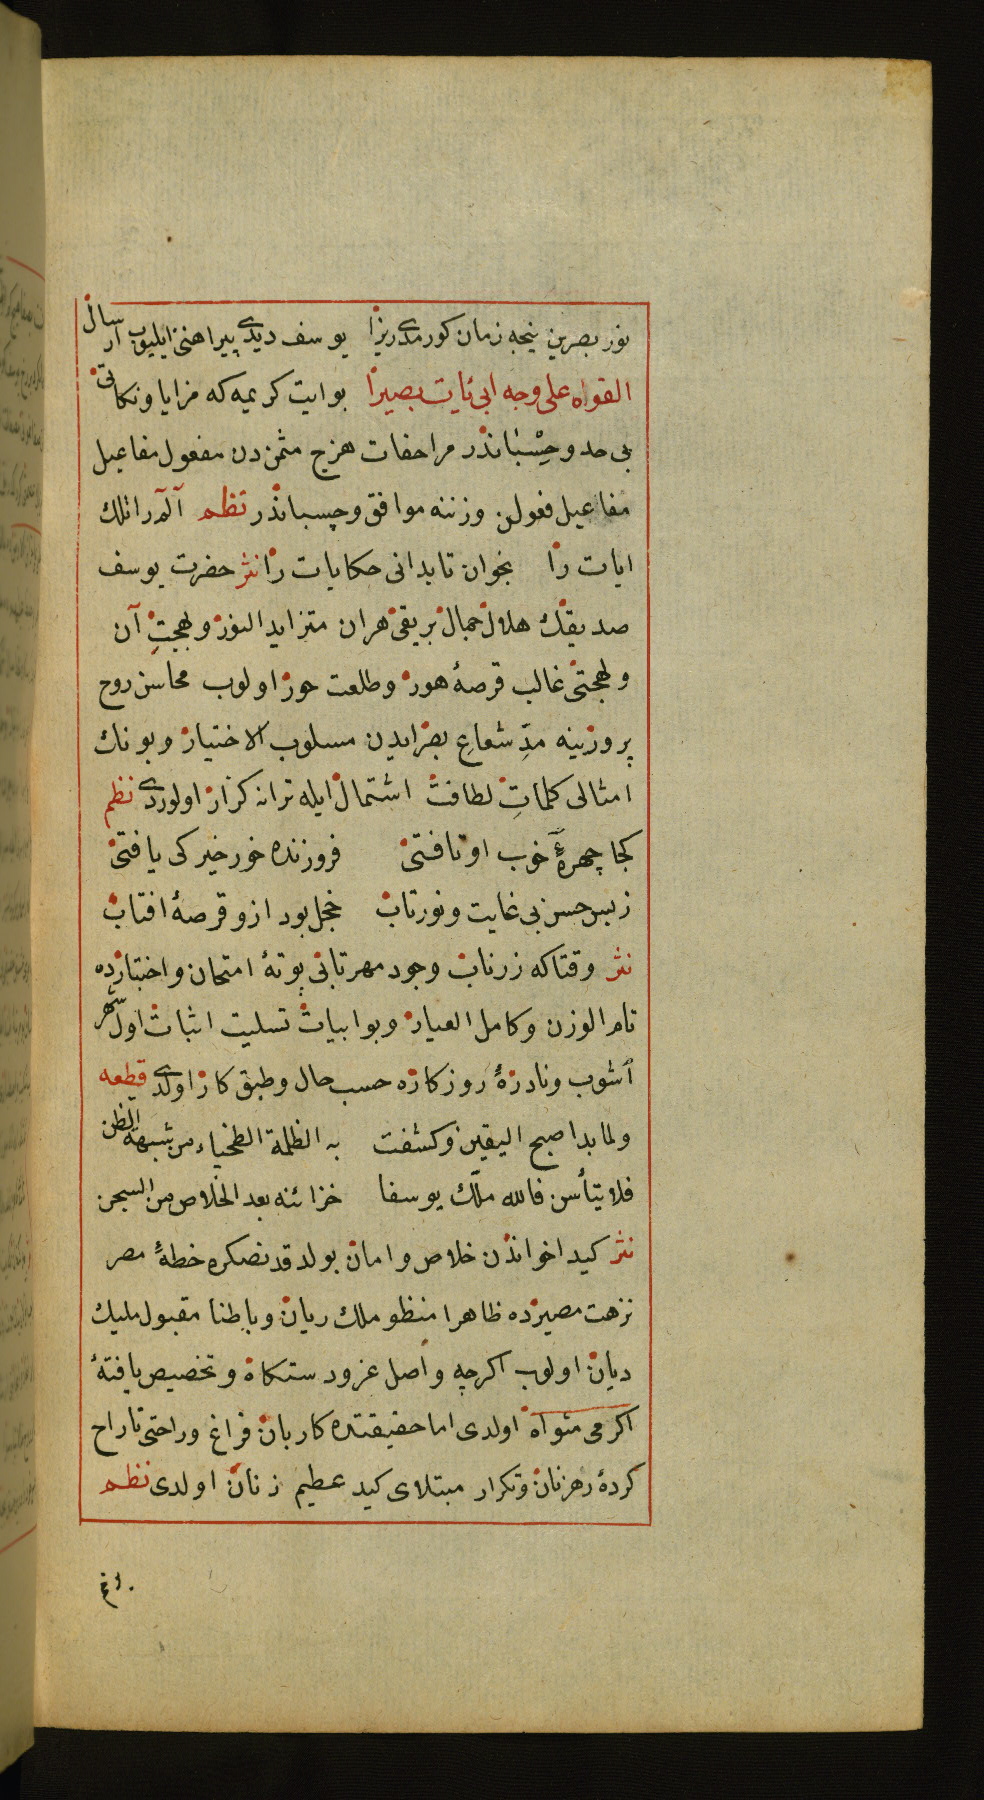 نور بصرین نیجه زمان کورمدی ریزا یوسف دیدی پیراهنی ایلیوب ارسال
القواه علی وجه ابی یأت بصیرا بو ایت کریمه که مزایا و نکاتی
بی حد و حسباندر مزاحفات هزج مثمن دن مفعول مفاعیل
مفاعیل فعولن وزننه موافق و چسباندر نظم آلر را تلک
ایات را بخوان تا بدانی حکایات را نثر حضرت یوسف
صدیقک هلال جمال بریقی هران متزاید النور و لهجت آن
و بهجتی غالب قرصهٔ هور و طلعت حور اولوب محاسن روح
پرورینه مدِّ شعاعِ بصر ایدن مسلوب الاختیار و بونک
امثالی کلماتِ لطافت اشتمال ایله ترانه کزار اولوردی نظم
کجا چهرهٔ خوب او تافتی فروزنده خور خیرکی یافتی
ز بس حسن بی غایت و نور تاب خجل بود ازو قرصهٔ افتاب
نثر وقتاکه زرناب وجود مهرتابی بوتهٔ امتحان و اختبارده
تام الوزن و کامل العیار و بو ابیات تسلیت اثبات اول شهر
آشوب و نادرهٔ روزکاره حسب حال و طبق کار اولدی قطعه
ولما بدا صبح الیقین وکشفت به الظلمة الطخیاء من شبهة الظن
فلا تیأسن فالله ملّک یوسفا خزائنه بعد الخلاص من السجن
نثر کید اخواندن خلاص و امان بولدقدنصکره خطهٔ مصر
نزهت مصیرده ظاهرا منظو ملک ریان و باطنا مقبول ملیک
دیان اولوب اکرچه واصل عزود ستکاه و تخصیص یافتهٔ
اکرمی مثواه اولدی اما حقیقتده کاربان فراغ و راحتی تاراج
کردهٔ رهزنان و تکرار مبتلای کید عظیم زنان اولدی نظم